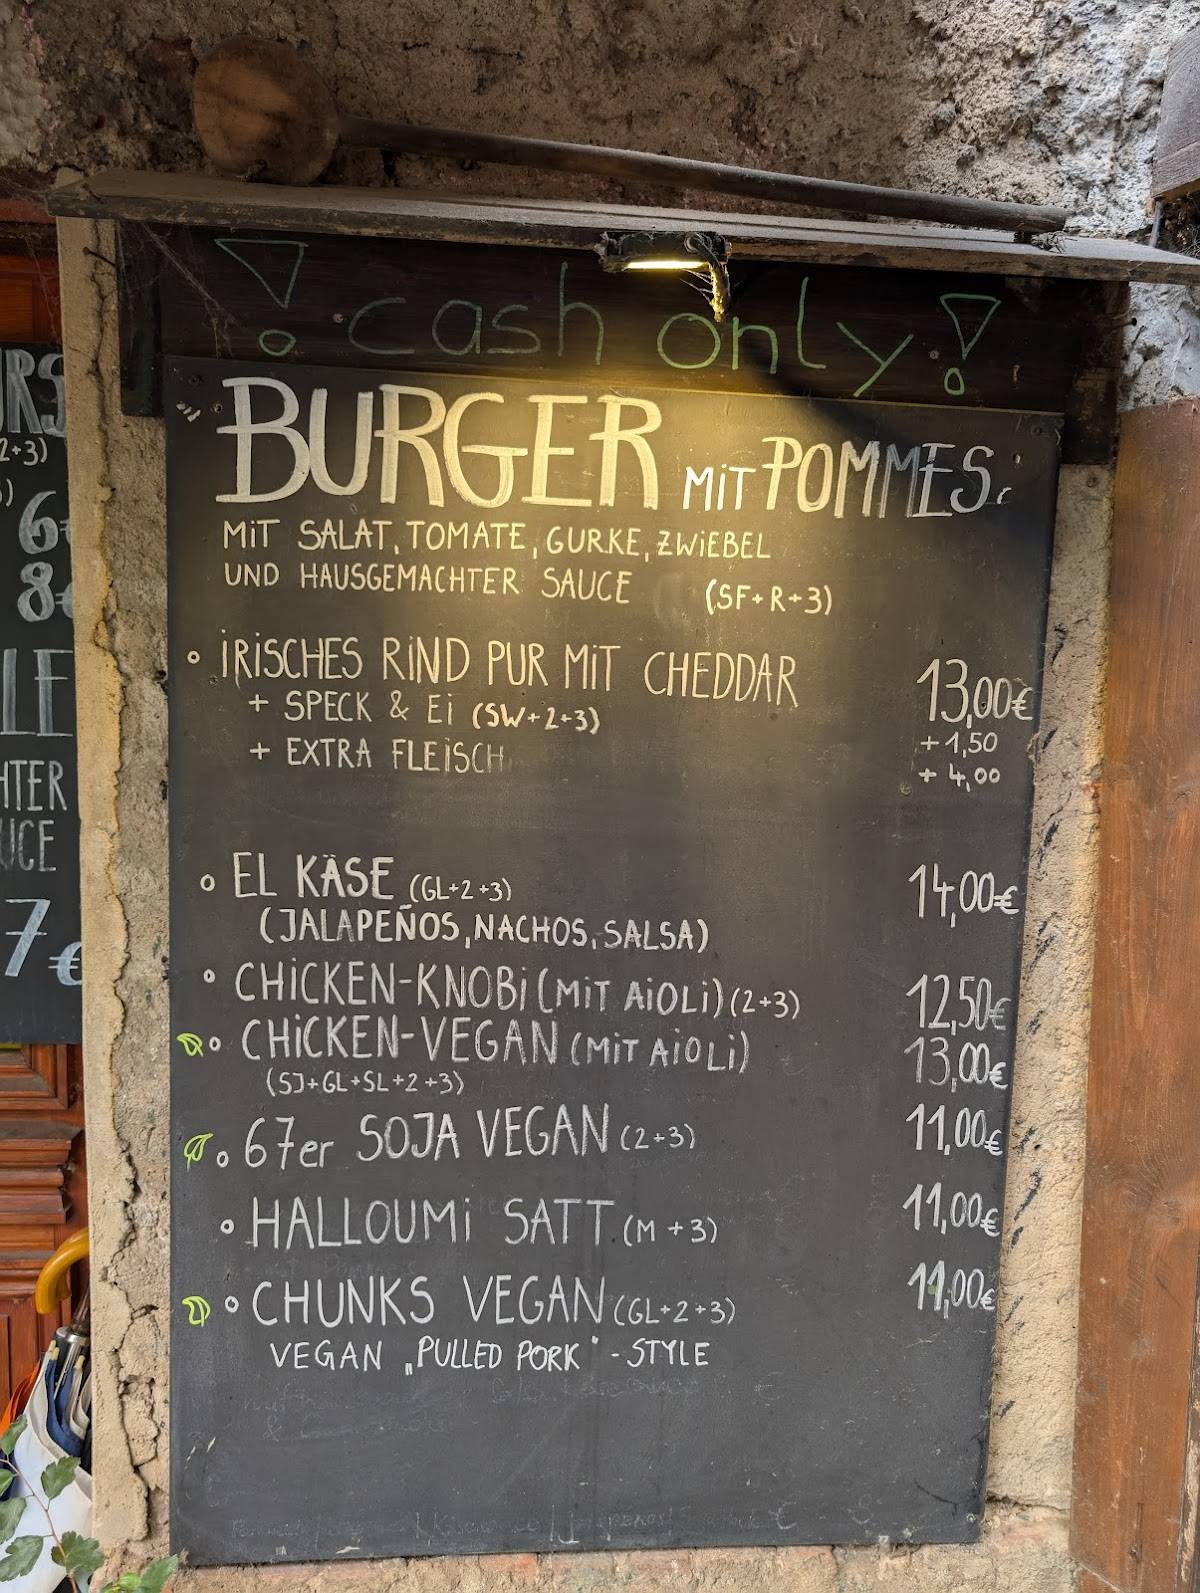 ! cash only !
BURGER MiT POMMES
MiT SALAT, TOMATE, GURKE, ZWiEBEL
UND HAUSGEMACHTER SAUCE (SF+R+3)
iRiSCHES RiND PUR MiT CHEDDAR 13,00€
+ SPECK & Ei (SW+2+3) +1,50
+ EXTRA FLEiSCH + 4,00
EL KÄSE (GL+2+3) 14,00€
(JALAPEÑOS, NACHOS, SALSA)
CHiCKEN-KNOBi (MiT AiOLi) (2+3) 12,50€
CHiCKEN-VEGAN (MiT AiOLi) 13,00€
(SJ+GL+SL+2+3)
67er SOJA VEGAN (2+3) 11,00€
HALLOUMi SATT (M+3) 11,00€
CHUNKS VEGAN (GL+2+3) 11,00€
VEGAN „PULLED PORK“-STYLE
2+3)
6€
8€
UCE
7€